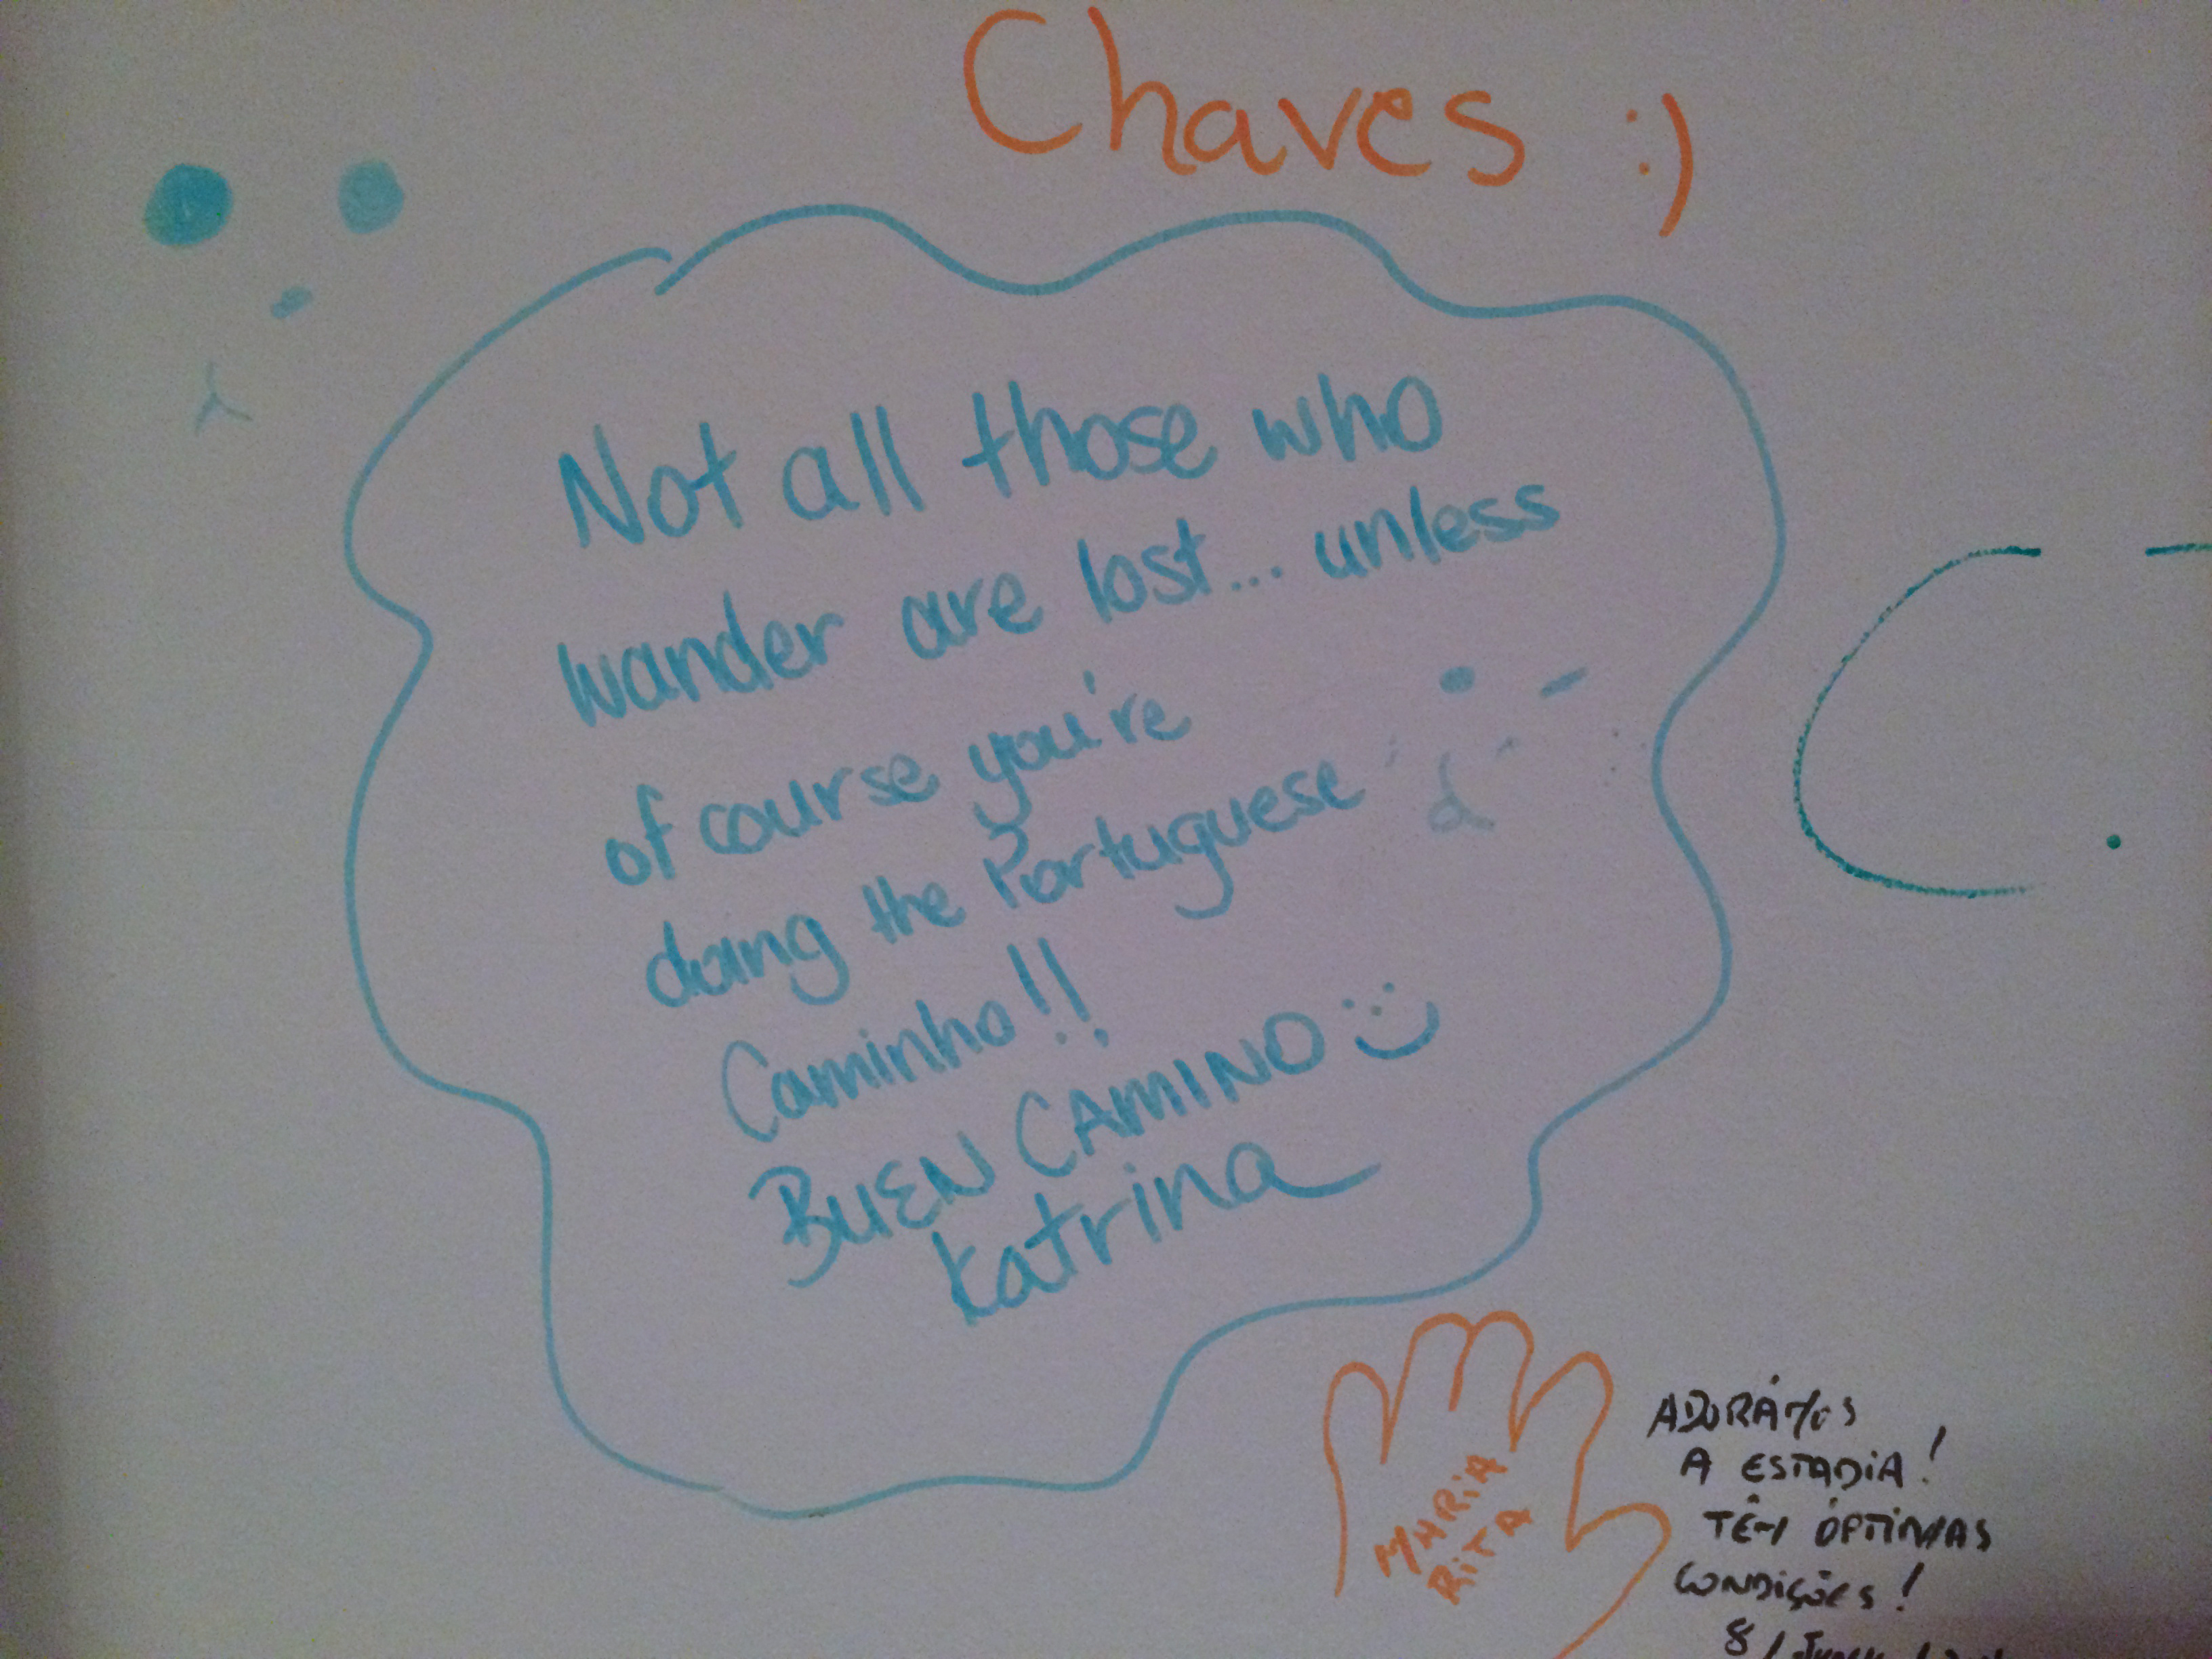 Chaves :)
Not all those who
wander are lost... unless
of course you're
doing the Portuguese
Caminho!!
BUEN CAMINO
Katrina
MARIA
RITA
ADORÁMOS
A ESTADIA!
TÊM ÓPTIMAS
CONDIÇÕES!
8/